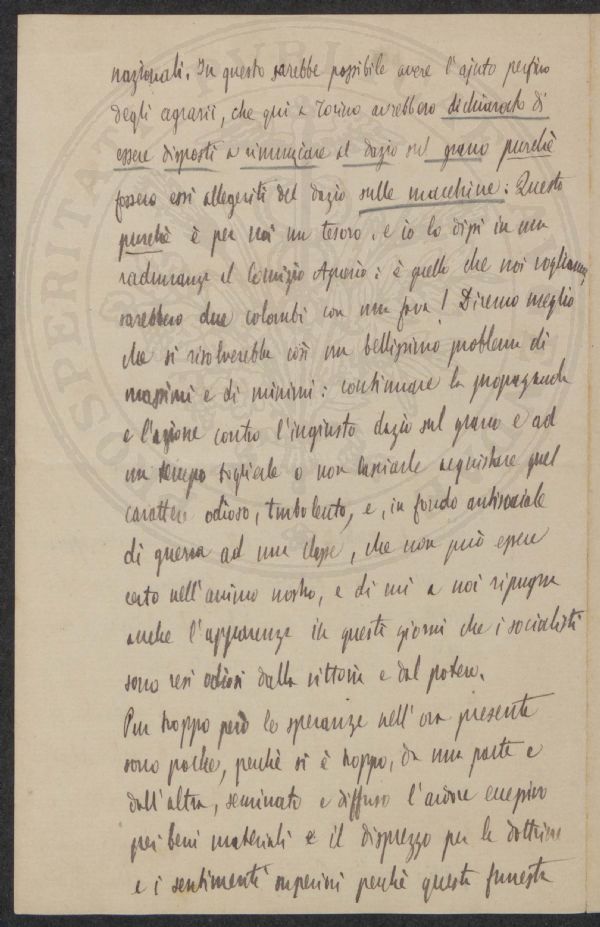 nazionali. In questo sarebbe possibile avere l'ajuto perfino
degli agrarii, che qui a Torino avrebbero dichiarato di
essere disposti a rinunziare al dazio sul grano purchè
fossero essi allegeriti del dazio sulle macchine: Questo
purchè è per noi un tesoro, e io lo dissi in una
radunanza al Comizio Agrario: è quello che noi vogliamo,
sarebbero due colombi con una fava! Diremo meglio
che si risolverebbe così un bellissimo problema di
massimi e di minimi: continuare la propaganda
e l'azione contro l'ingiusto dazio sul grano e ad
un tempo togliere o non lasciarle acquistare quel
carattere odioso, turbolento, e, in fondo antisociale
di guerra ad una classe, che non può essere
certo nell'animo nostro, e di cui a noi ripugna
anche l'apparenza in questi giorni che i socialisti
sono resi odiosi dalla vittoria e dal potere.
Pur troppo però le speranze nell'ora presente
sono poche, perchè si è troppo, da una parte e
dall'altra, seminato e diffuso l'ardore
pei beni materiali e il disprezzo per le dottrine
e i sentimenti superiori perchè questa funesta
PROSPERITATI PUBLICAE